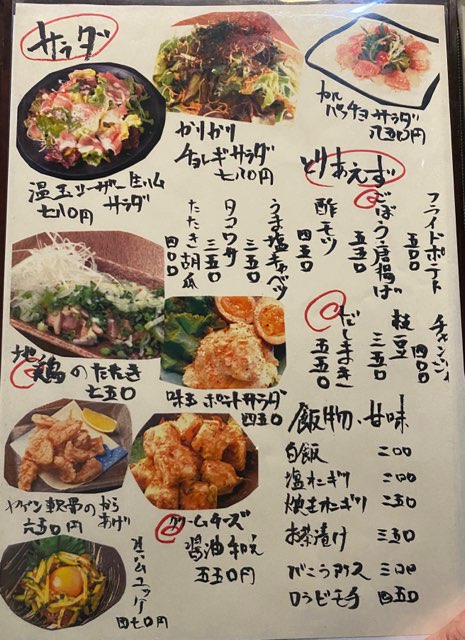 サラダ
カルパッチョサラダ
八五〇円
カリカリ
チョレギサラダ
七八〇円
温玉シーザー生ハム
サラダ
七八〇円
とりあえず
フライドポテト
五〇〇
ごぼう唐揚げ
五五〇
酢モツ
四五〇
うま塩キャベツ
三五〇
タコワサ
三五〇
たたき胡瓜
四〇〇
チャンジャ
四〇〇
枝豆
三五〇
だしまき
五五〇
地鶏のたたき
七五〇
味玉ポテトサラダ
四五〇
ヤゲン軟骨のから
あげ
六五〇円
クリームチーズ
醤油和え
五五〇円
生ハムユッケ
四七〇円
飯物、甘味
白飯 二〇〇
塩オニギリ 二〇〇
焼きオニギリ 二五〇
お茶漬け 三五〇
ばこうアイス 三〇〇
ワラビモチ